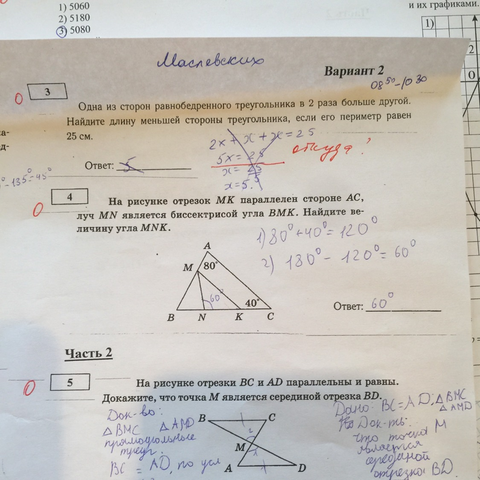 1) 5060
2) 5180
3) 5080
и их графиками.
1)
Маслевских
Вариант 2
08 50 - 10 30
0
3
Одна из сторон равнобедренного треугольника в 2 раза больше другой.
Найдите длину меньшей стороны треугольника, если его периметр равен
25 см.
2x + x + x = 25
5x = 25
x = 25
5
x = 5.
откуда?
Ответ: 5
0
4
На рисунке отрезок MK параллелен стороне AC,
луч MN является биссектрисой угла BMK. Найдите ве-
личину угла MNK.
1) 80° + 40° = 120°
2) 180° - 120° = 60°
A
M
80°
60°
40°
B
N
K
C
Ответ: 60°
Часть 2
0
5
На рисунке отрезки BC и AD параллельны и равны.
Докажите, что точка M является серединой отрезка BD.
Док-во:
△BMC △AMD
BC = AD, по усл
B
C
2
M
1
A
D
Дано: BC = AD; △BMC
△AMD
Док-ть:
что точка M
является
серединой
отрезка BD.